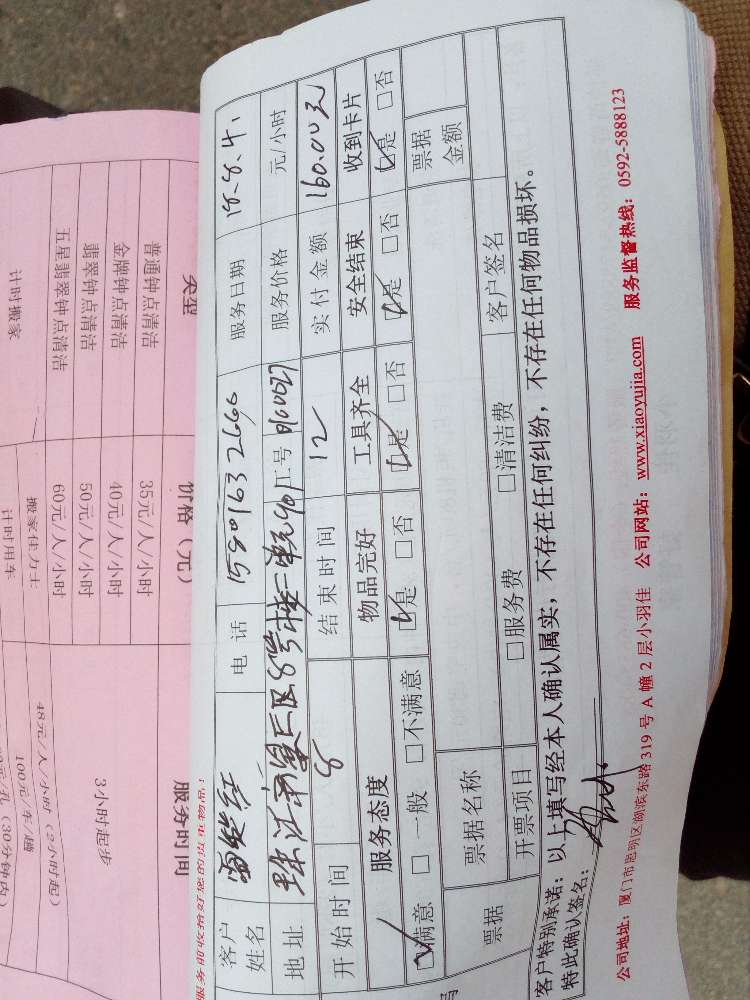 客户姓名 电话 15801632666 服务日期 18.8.4.
地址 服务价格 元/小时
开始时间 8 结束时间 12 实付金额 160.00元
服务态度 物品完好 工具齐全 安全结束 收到卡片
☑满意 □一般 □不满意 ☑是 □否 ☑是 □否 ☑是 □否 ☑是 □否
票据 票据名称 票据金额
开票项目 □服务费 □清洁费 客户签名
客户特别承诺：以上填写经本人确认属实，不存在任何纠纷，不存在任何物品损坏。
特此确认签名：
公司地址：厦门市思明区湖滨东路 319 号 A 幢 2 层小羽佳 公司网站：www.xiaoyujia.com 服务监督热线：0592-5888123
类型 价格（元） 服务时间
普通钟点清洁 35元/人/小时 3小时起步
金牌钟点清洁 40元/人/小时
翡翠钟点清洁 50元/人/小时
五星翡翠钟点清洁 60元/人/小时
计时搬家 搬家佳力士 48元/人/小时（2小时起）
计时用车 100元/车/趟